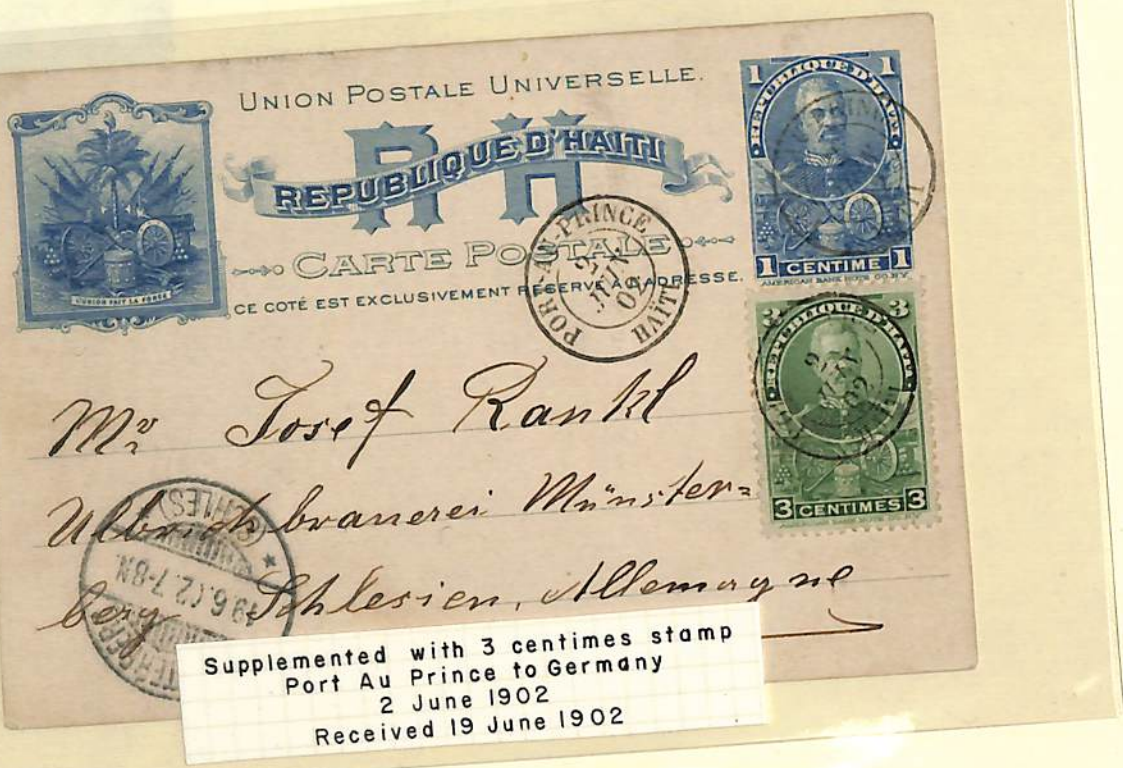 UNION POSTALE UNIVERSELLE.
RH
REPUBLIQUE D'HAITI
CARTE POSTALE
CE COTÉ EST EXCLUSIVEMENT RÉSERVÉ A L'ADRESSE.
L'UNION FAIT LA FORCE
1 1
REPUBLIQUE D'HAITI
1 CENTIME 1
AMERICAN BANK NOTE CO. N.Y.
PRINCE
POR-AU-PRINCE
2
JUIN
02
HAITI
3
REPUBLIQUE D'HAITI
2
02
3 CENTIMES 3
Mr Josef Rankl
Ulbrich brauerei Münster=
berg Schlesien, Allemagne
(SCHLES)
19.6.02.7-8N.
Supplemented with 3 centimes stamp
Port Au Prince to Germany
2 June 1902
Received 19 June 1902